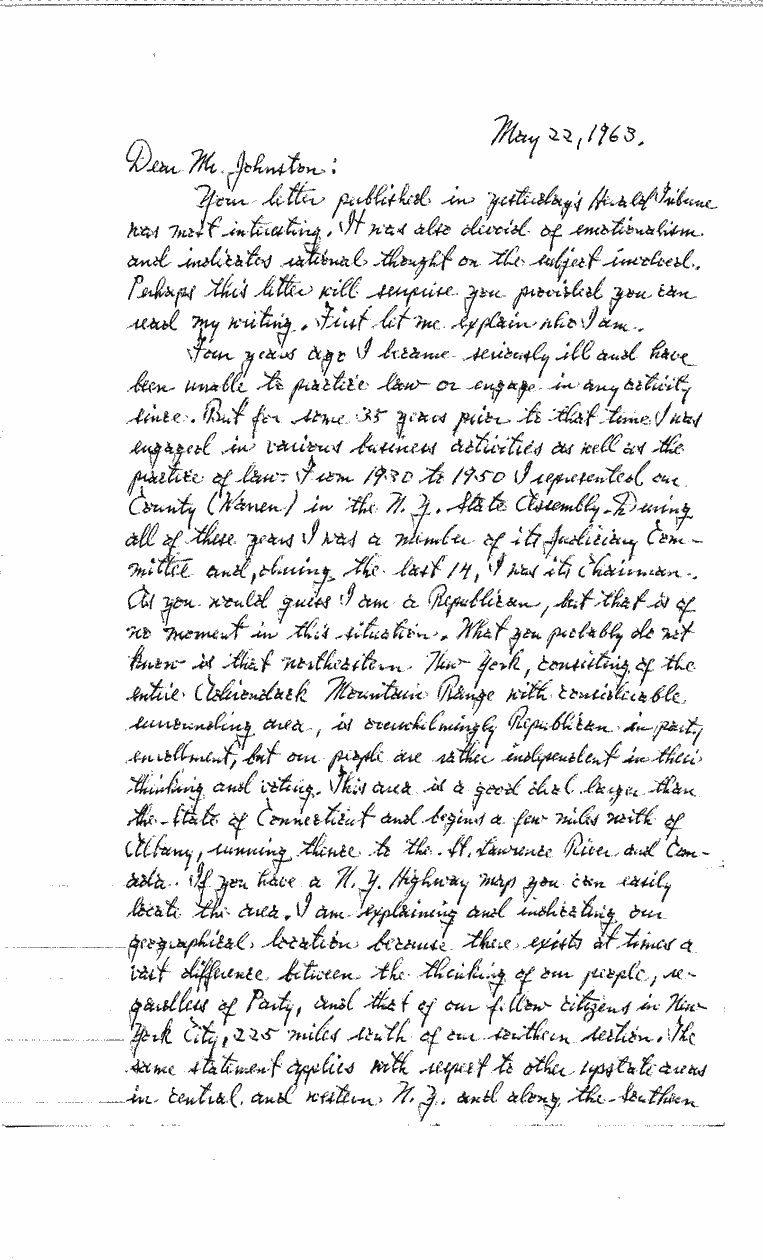 May 22, 1963.
Dear Mr. Johnston:
Your letter published in yesterday's Herald Tribune
was most interesting. It was also devoid of emotionalism
and indicates rational thought on the subject involved.
Perhaps this letter will surprise you provided you can
read my writing. First let me explain who I am.
Four years ago I became seriously ill and have
been unable to practice law or engage in any activity
since. But for some 35 years prior to that time I was
engaged in various business activities as well as the
practice of law. From 1930 to 1950 I represented our
County (Warren) in the N. Y. State Assembly. During
all of these years I was a member of its Judiciary Com-
mittee and, during the last 14, I was its Chairman.
As you would guess I am a Republican, but that is of
no moment in this situation. What you probably do not
know is that northeastern New York, consisting of the
entire Adirondack Mountain Range with considerable
surrounding area, is overwhelmingly Republican in party
enrollment, but our people are rather independent in their
thinking and voting. This area is a good deal larger than
the State of Connecticut and begins a few miles north of
Albany, running thence to the St. Lawrence River and Can-
ada. If you have a N. Y. Highway map you can easily
locate the area. I am explaining and indicating our
geographical location because there exists at times a
vast difference between the thinking of our people, re-
gardless of Party, and that of our fellow citizens in New
York City, 225 miles south of our southern section. The
same statement applies with respect to other upstate areas
in central and western N. Y. and along the Southern